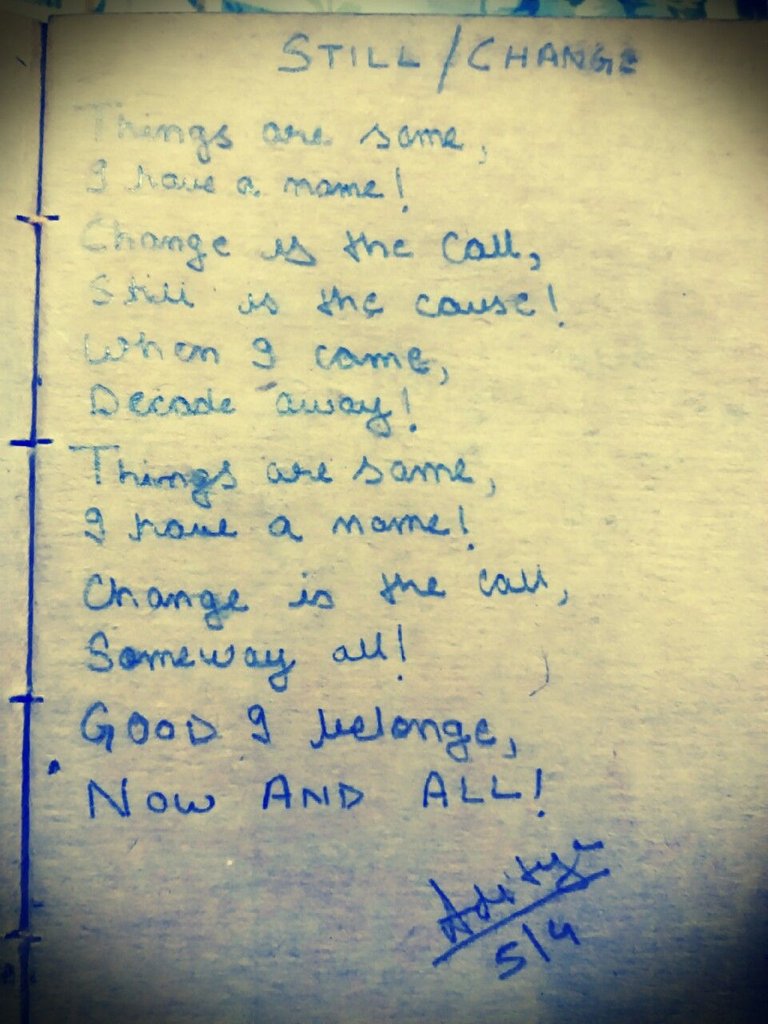 STILL/CHANGE
Things are same,
I have a name!
Change is the call,
Still is the cause!
When I came,
Decade away!
Things are same,
I have a name!
Change is the call,
Someway all!
GOOD I belonge,
NOW AND ALL!
Aditya
5/4